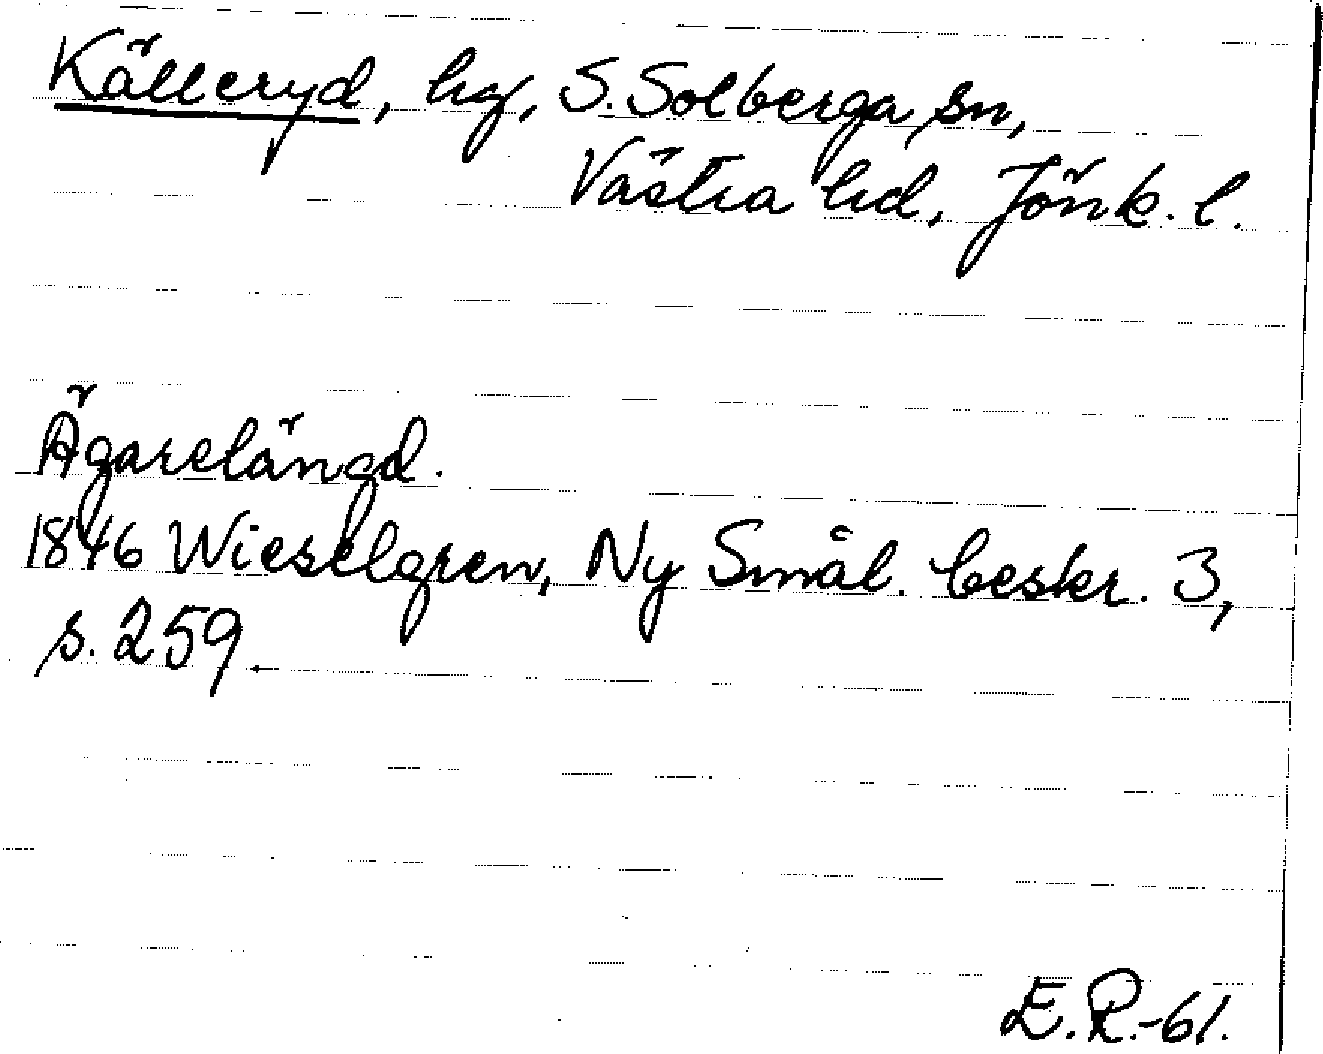 Källeryd, hg, S. Solberga sn,
Västra hd, Jönk. l.
Ägarelängd.
1846 Wieselgren, Ny Smål. beskr. 3,
s. 259
E.R.-61.